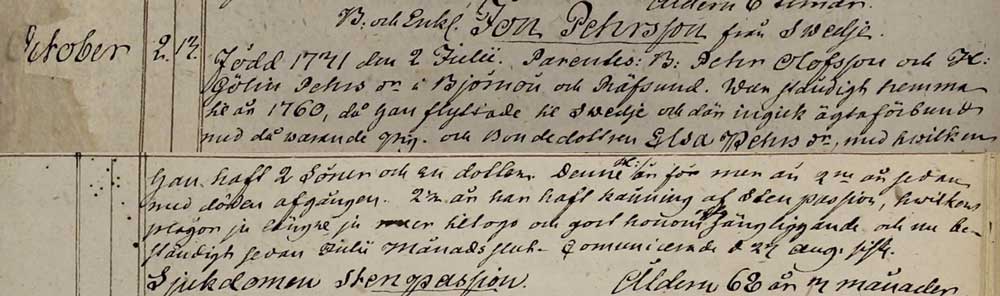 Åldern 6 timar.
B. och Enkl. Jon Pehrsson från Swedje.
October 2. 12. Född 1741 den 2 Julii. Parentes: B: Pehr Olofsson och H:
Gölin Pehrs dr i Björnön och Räfsund. War ständigt hemma
til år 1760, då han flyttade til Swedje och där ingick ägteförbund
med då warande pig. och Bondedottren Elsa Pehrs dr, med hwilken
han haft 2 Söner och en dotter. Denne är för mer än 2 år sedan
med döden afgången. 2 år han haft känning af Stenpassion, hwilkens
plågor ju längre ju mer tiltogo och giort honom sängliggande och nu be-
ständigt sedan Julii Månads slut. Communicerade d 27 Aug. sistl.
Sjukdomen Stenpassion. Åldern 68 år månader